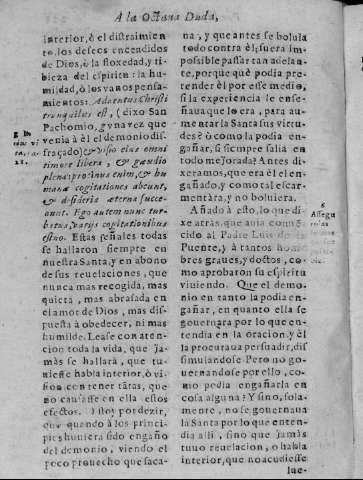 A la Octaua Duda,
interior, ò el distraimien
to, los deseos encendidos
de Dios, ò la floxedad, y ti-
bieza del espiritu: la hu-
mildad, ò los vanos pensa-
mientos: Aduentus Christi
tranquilus est, (dixo San
Pachomio, y vna vez que
venia à èl el demonio disfraçado)
& visio eius omni
timore libera, & gaudio
plena: protinus enim, & hu-
manæ cogitationes abeunt,
& desideria æterna succe-
unt. Ego autem nunc tur-
betus, varijs cogitationibus
estuo. Estas señales todas
se hallaron siempre en
nuestra Santa, y en abono
de sus reuelaciones, que
nunca mas recogida, mas
quieta, mas abrasada en
el amor de Dios, mas dis-
puesta à obedecer, ni mas
humilde. Lease con aten-
cion toda la vida, que ja-
màs se hallarà, que tu-
uiesse habla interior, ò vi-
sion con tener tãtas, que
no causasse en ella estos
efectos. D stoy por dezir,
que quando à los princi-
pios huuiera sido engaño
del demonio, viendo el
poco prouecho que saca-
ua, y que antes se boluia
todo contra èl, fuera im-
possible passar tan adelan-
te, porque què podia pre-
tender èl por esse medio,
si la experiencia le ense-
ñaua que lo era, para au-
mentar la Santa sus virtu-
des? ò como la podia en-
gañar, si siempre salia en
todo mejorada? Antes di-
xeramos, que era èl el en-
gañado, y como tal escar-
mentàra, y no boluiera.
8
Assegu
Añado à esto, lo que di-
xe atràs, que auia
cido al Padre Luis de
Puente, y à tantos hom-
bres graues, y doctos, co-
mo aprobaron su espiritu
viuiendo. Que el demo-
nio en tanto la podia en-
gañar, en quanto ella se
gouernàra por lo que en-
tendia en la oracion, y èl
la procuraua persuadir, dis-
simulandose. Pero no go-
uernandose por ello, co-
mo podia engañarla en
cosa alguna? Y sino, sola-
mente, no se gouernaua
la Santa por lo que enten-
dia alli, sino que jamàs
tuuo reuelacion, o habla
interior, que no acudiesse
lue-